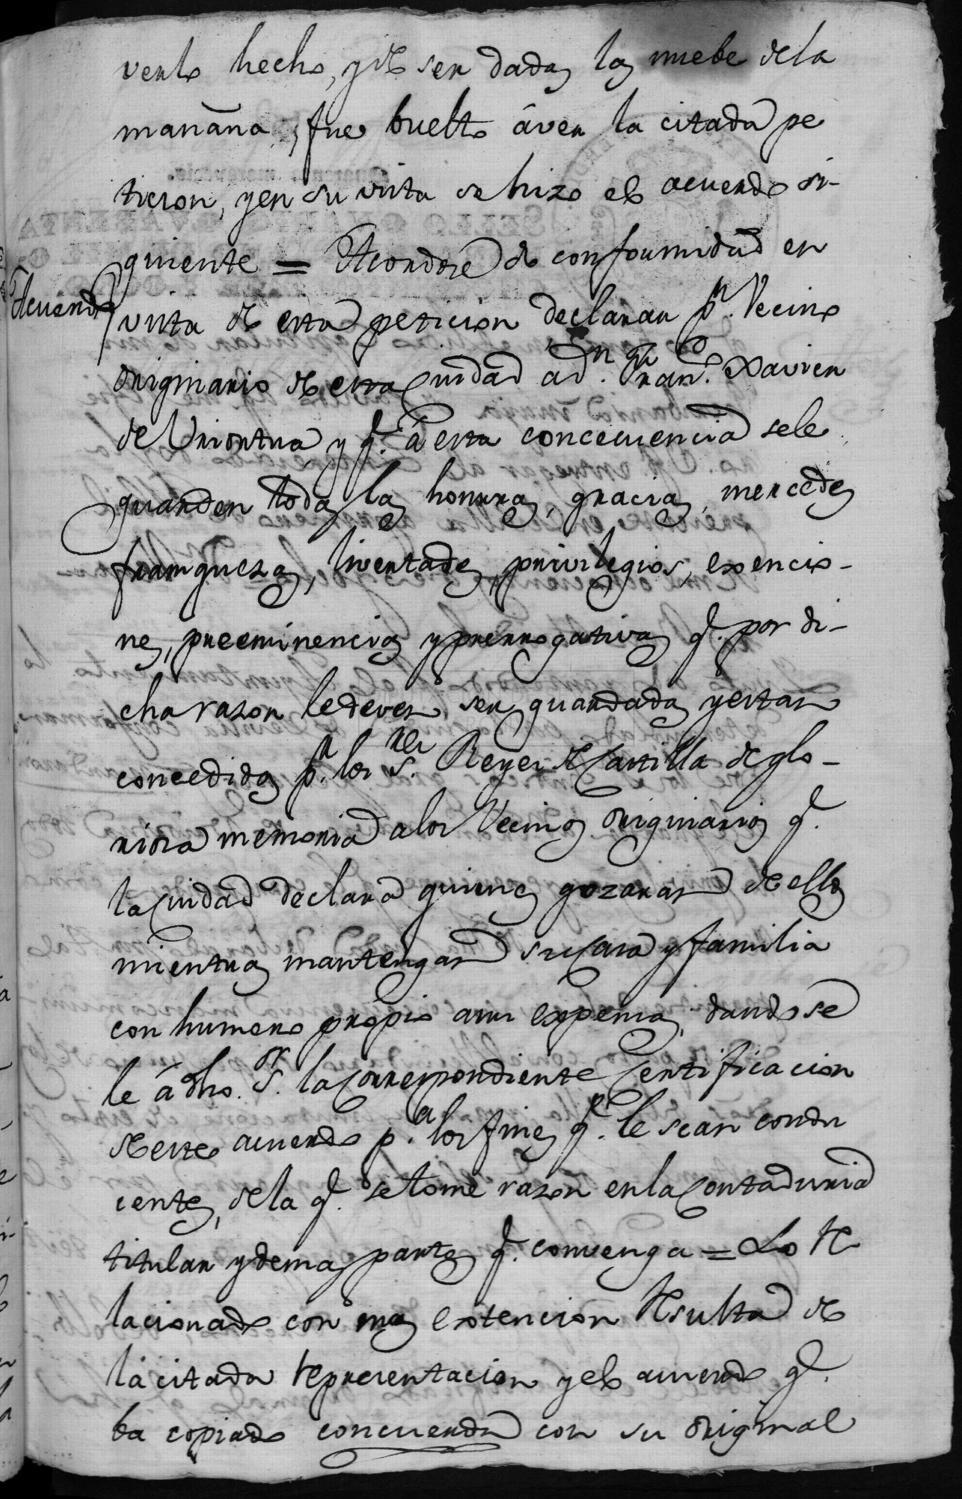 verlo hecho, y de ser dadas las nuebe dela
mañana, fue buelto áver la citada pe
ticion, y en su vista se hizo el acuerdo si-
guiente = Acordose de conformidad en
Acuerdo
vista de esta peticion declarar pr. Vecino
originario de esta Ciudad a Dn. Franco. Xavier
de Uriortua y q. á esta concecuencia sele
guarden todas las honrras, gracias, mercedes
franquezas, livertades, privilegios, exencio-
nes, preeminencias y prerrogativas q. por di-
cha razon le deven ser guardadas y estan
concedidas pr. los Sres. Reyes de Castilla de glo-
riosa memoria a los Vecinos originarios q.
la Ciudad declara quienes gozaran de ellas
mientras mantengan su Casa y familia
con humero propio a sus expensas, dandose
le á dho. Sr. la Correspondiente Certificacion
de este acuerdo pa. los fines q. le sean condu
centes, de la q. se tome razon en la Contaduria
titular y demas partes q. convenga = Lo Re
lacionado con mas extencion Resulta de
la citada representacion y el acuerdo q.
ba copiado concuerda con su original